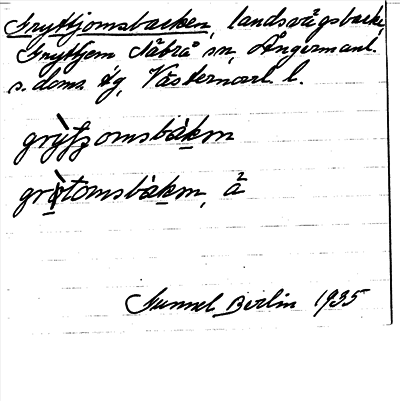 Gryttjomsbacken, landsvägsbacke,
Gryttjom Säbrå sn, Ångermanl.
s. doms. tg, Västernorrl. l.
grỳtʃomsbàkm
tomsbàkm, å
Gunnel Berlin 1935